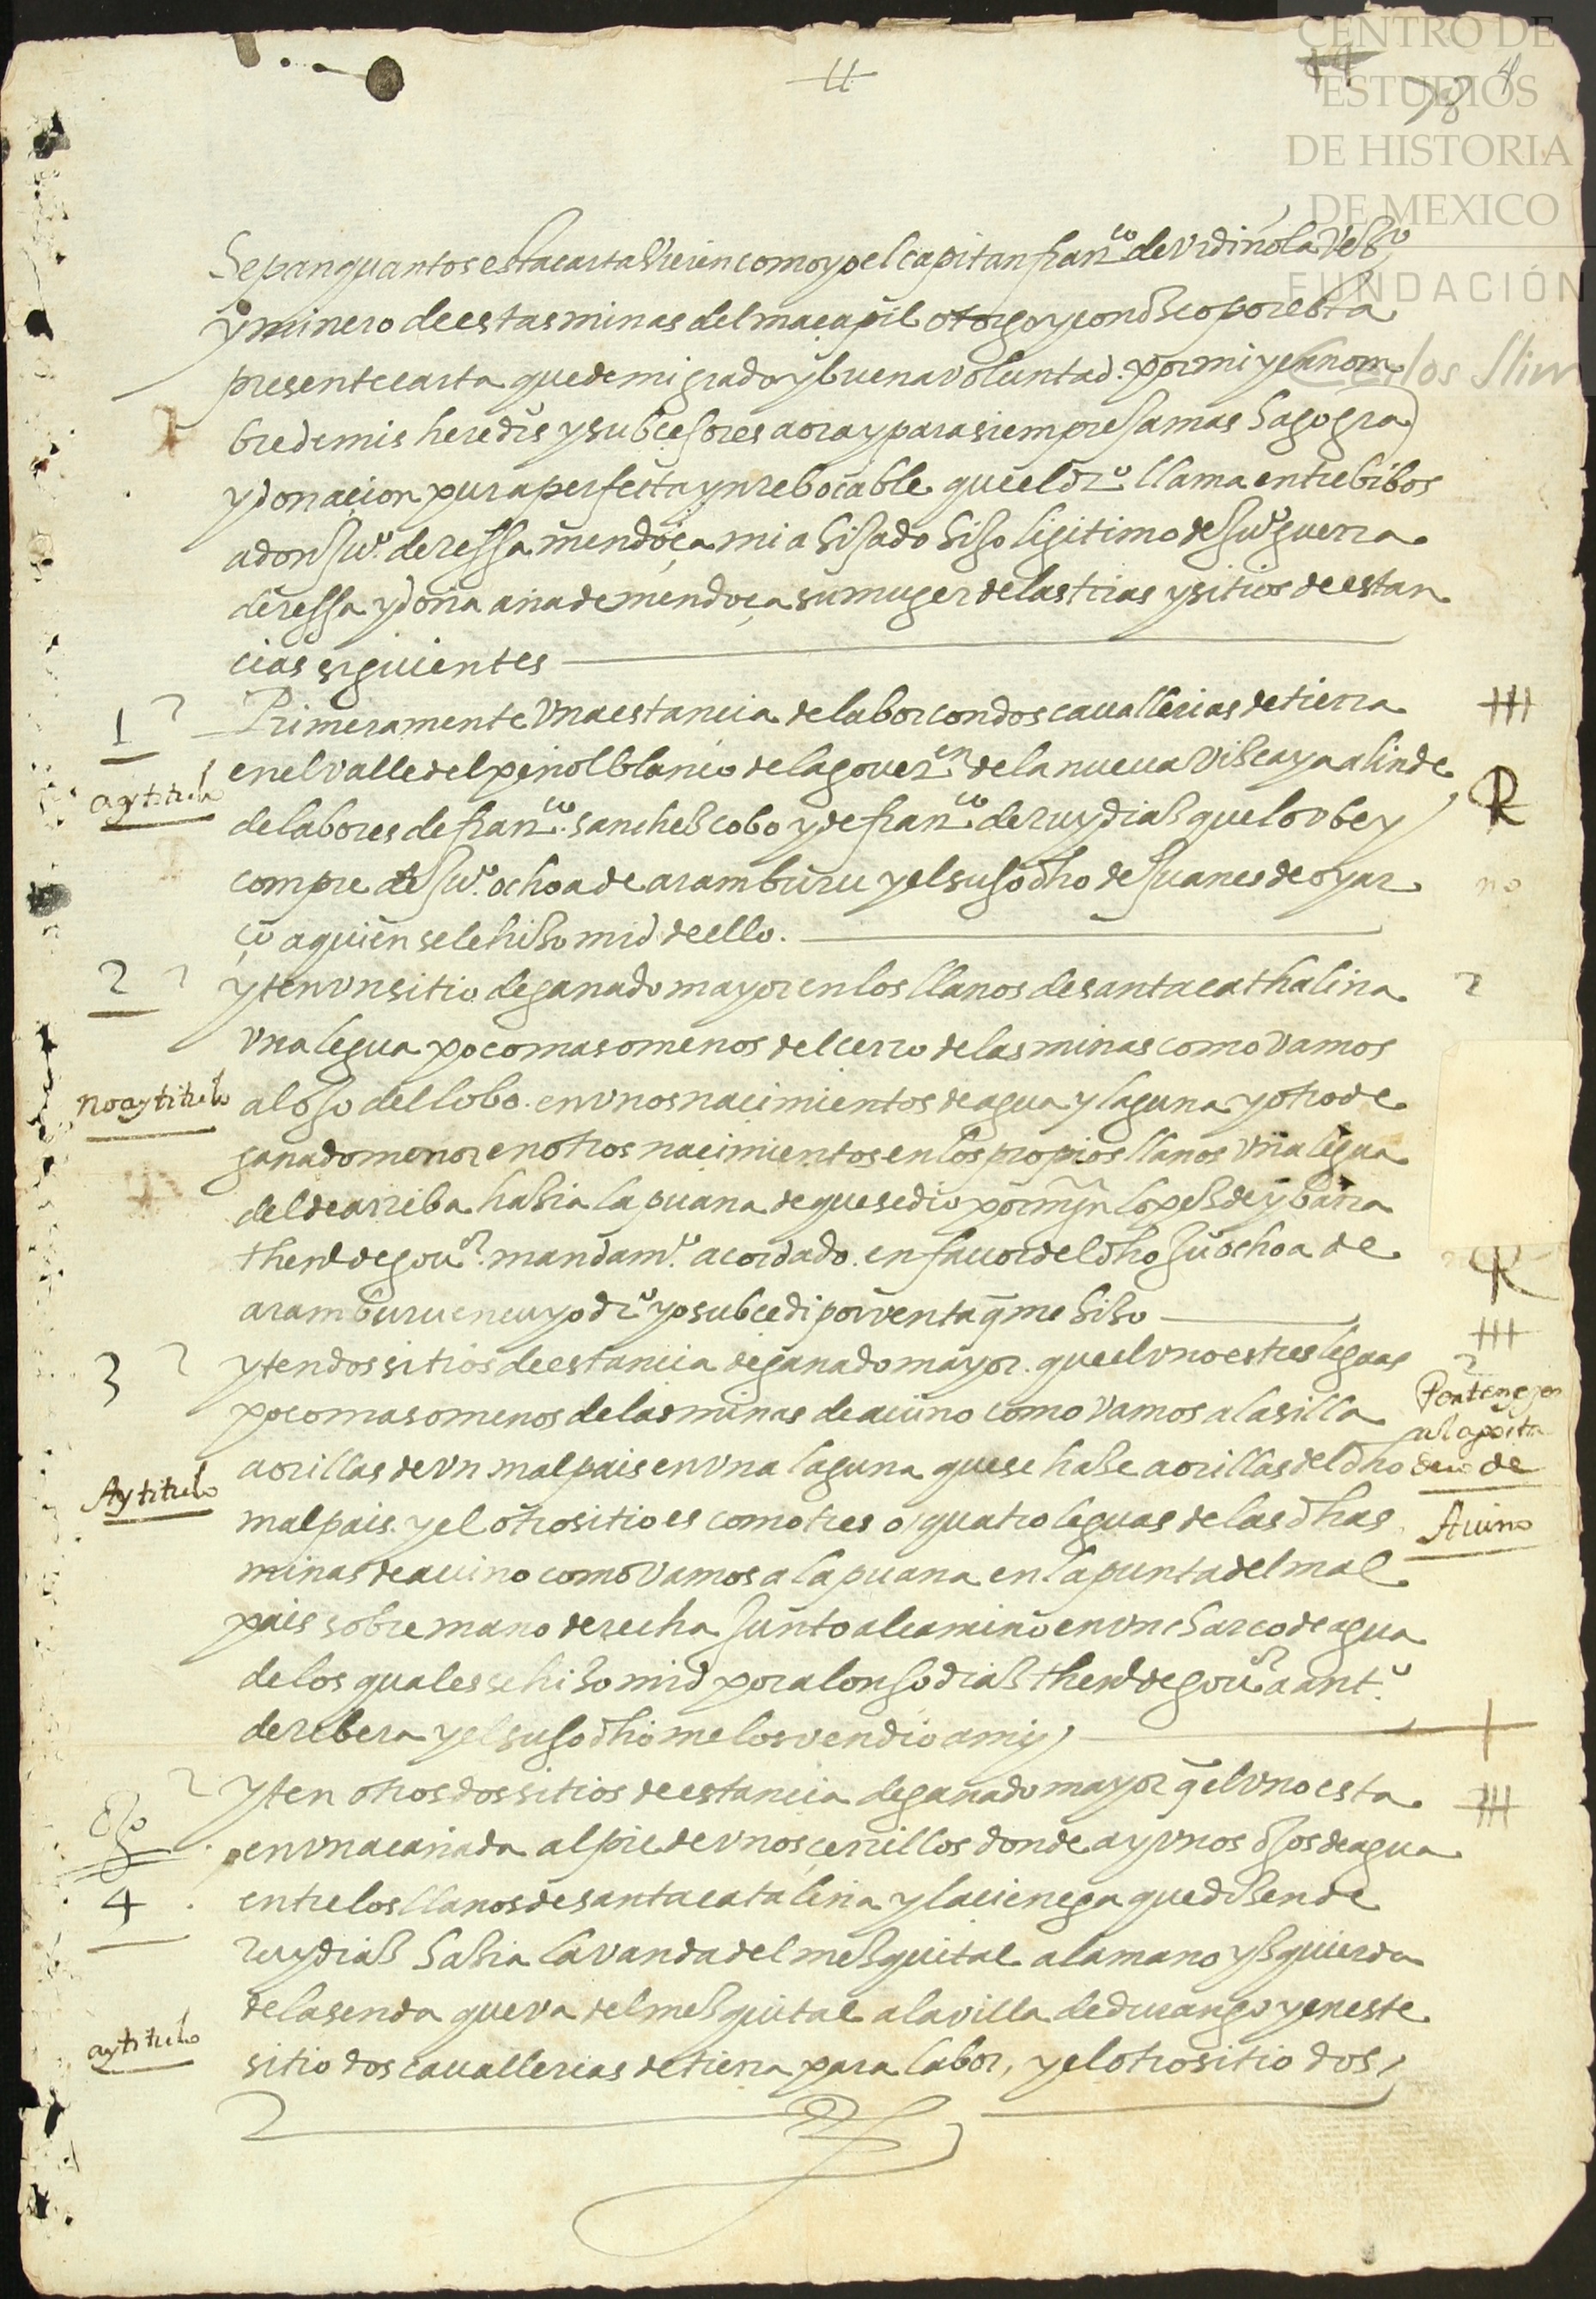 CENTRO DE
ESTUDIOS
DE HISTORIA
DE MEXICO
FUNDACIÓN
Carlos Slim
Sepan quantos esta carta vieren como yo el capitan franco de vrdiñola vezo
y minero de estas minas del maçapil otorgo y conozco por esta
presente carta que de mi grado y buena voluntad por mi y en nom
bre de mis heredos y subcesores aora y para siempre jamas hago gra
y donacion pura perfecta ynrebocable que el dro llama entre bibos
a don juo de ressa mendoça mi ahijado hijo ligitimo de juo guerra
de ressa y doña ana de mendoça su muger de las trras y sitios de estan
cias siguientes
1
Primeramente vna estancia de labor con dos cauallerias de tierra
ay titulo
en el valle del peñol blanco de la goueron de la nueua viscaya a linde
R
de labores de franco sanchez cobo y de franco de ruydiaz que lo vbe y
compre de juo ochoa de aramburu y el susodho de juanes de oyar
no
çu a quien se le hizo mrd de ello
2
yten vn sitio de ganado mayor en los llanos de santa cathalina
vna legua poco mas o menos del cerro de las minas como vamos
no ay titulo
al ojo del lobo en vnos nacimientos de agua y laguna y otro de
ganado menor en otros nacimientos en los propios llanos vna legua
del de arriba hazia la puana de que se dio por mrn lopez de ybarra
thente de gour mandamo acordado en fauor del dho juo ochoa de
R
aramburu en cuyo dro yo subcedi por venta q me hizo
3
yten dos sitios de estancia de ganado mayor que el vno es tres leguas
poco mas o menos de las minas de auino como vamos a la silla
Pertenezen
a orillas de vn malpais en vna laguna que se haze a orillas del dho
Ay titulo
de
malpais y el otro sitio es como tres o quatro leguas de las dhas
Auino
minas de auino como vamos a la puana en la punta del mal
pais sobre mano derecha junto al camino en vn charco de agua
de los quales se hizo mrd por alonso diaz thente de gour a anto
de ribera y el susodho me los vendio a mi
yten otros dos sitios de estancia de ganado mayor q el vno esta
en vna cañada al pie de vnos cerrillos donde ay vnos ojos de agua
4
entre los llanos de santa catalina y la cienega que dizen de
ruydiaz hazia la vanda del mezquital a la mano yzquierda
de la senda que va del mezquital a la villa de durango y en este
ay titulo
sitio dos cauallerias de tierra para labor, y el otro sitio dos